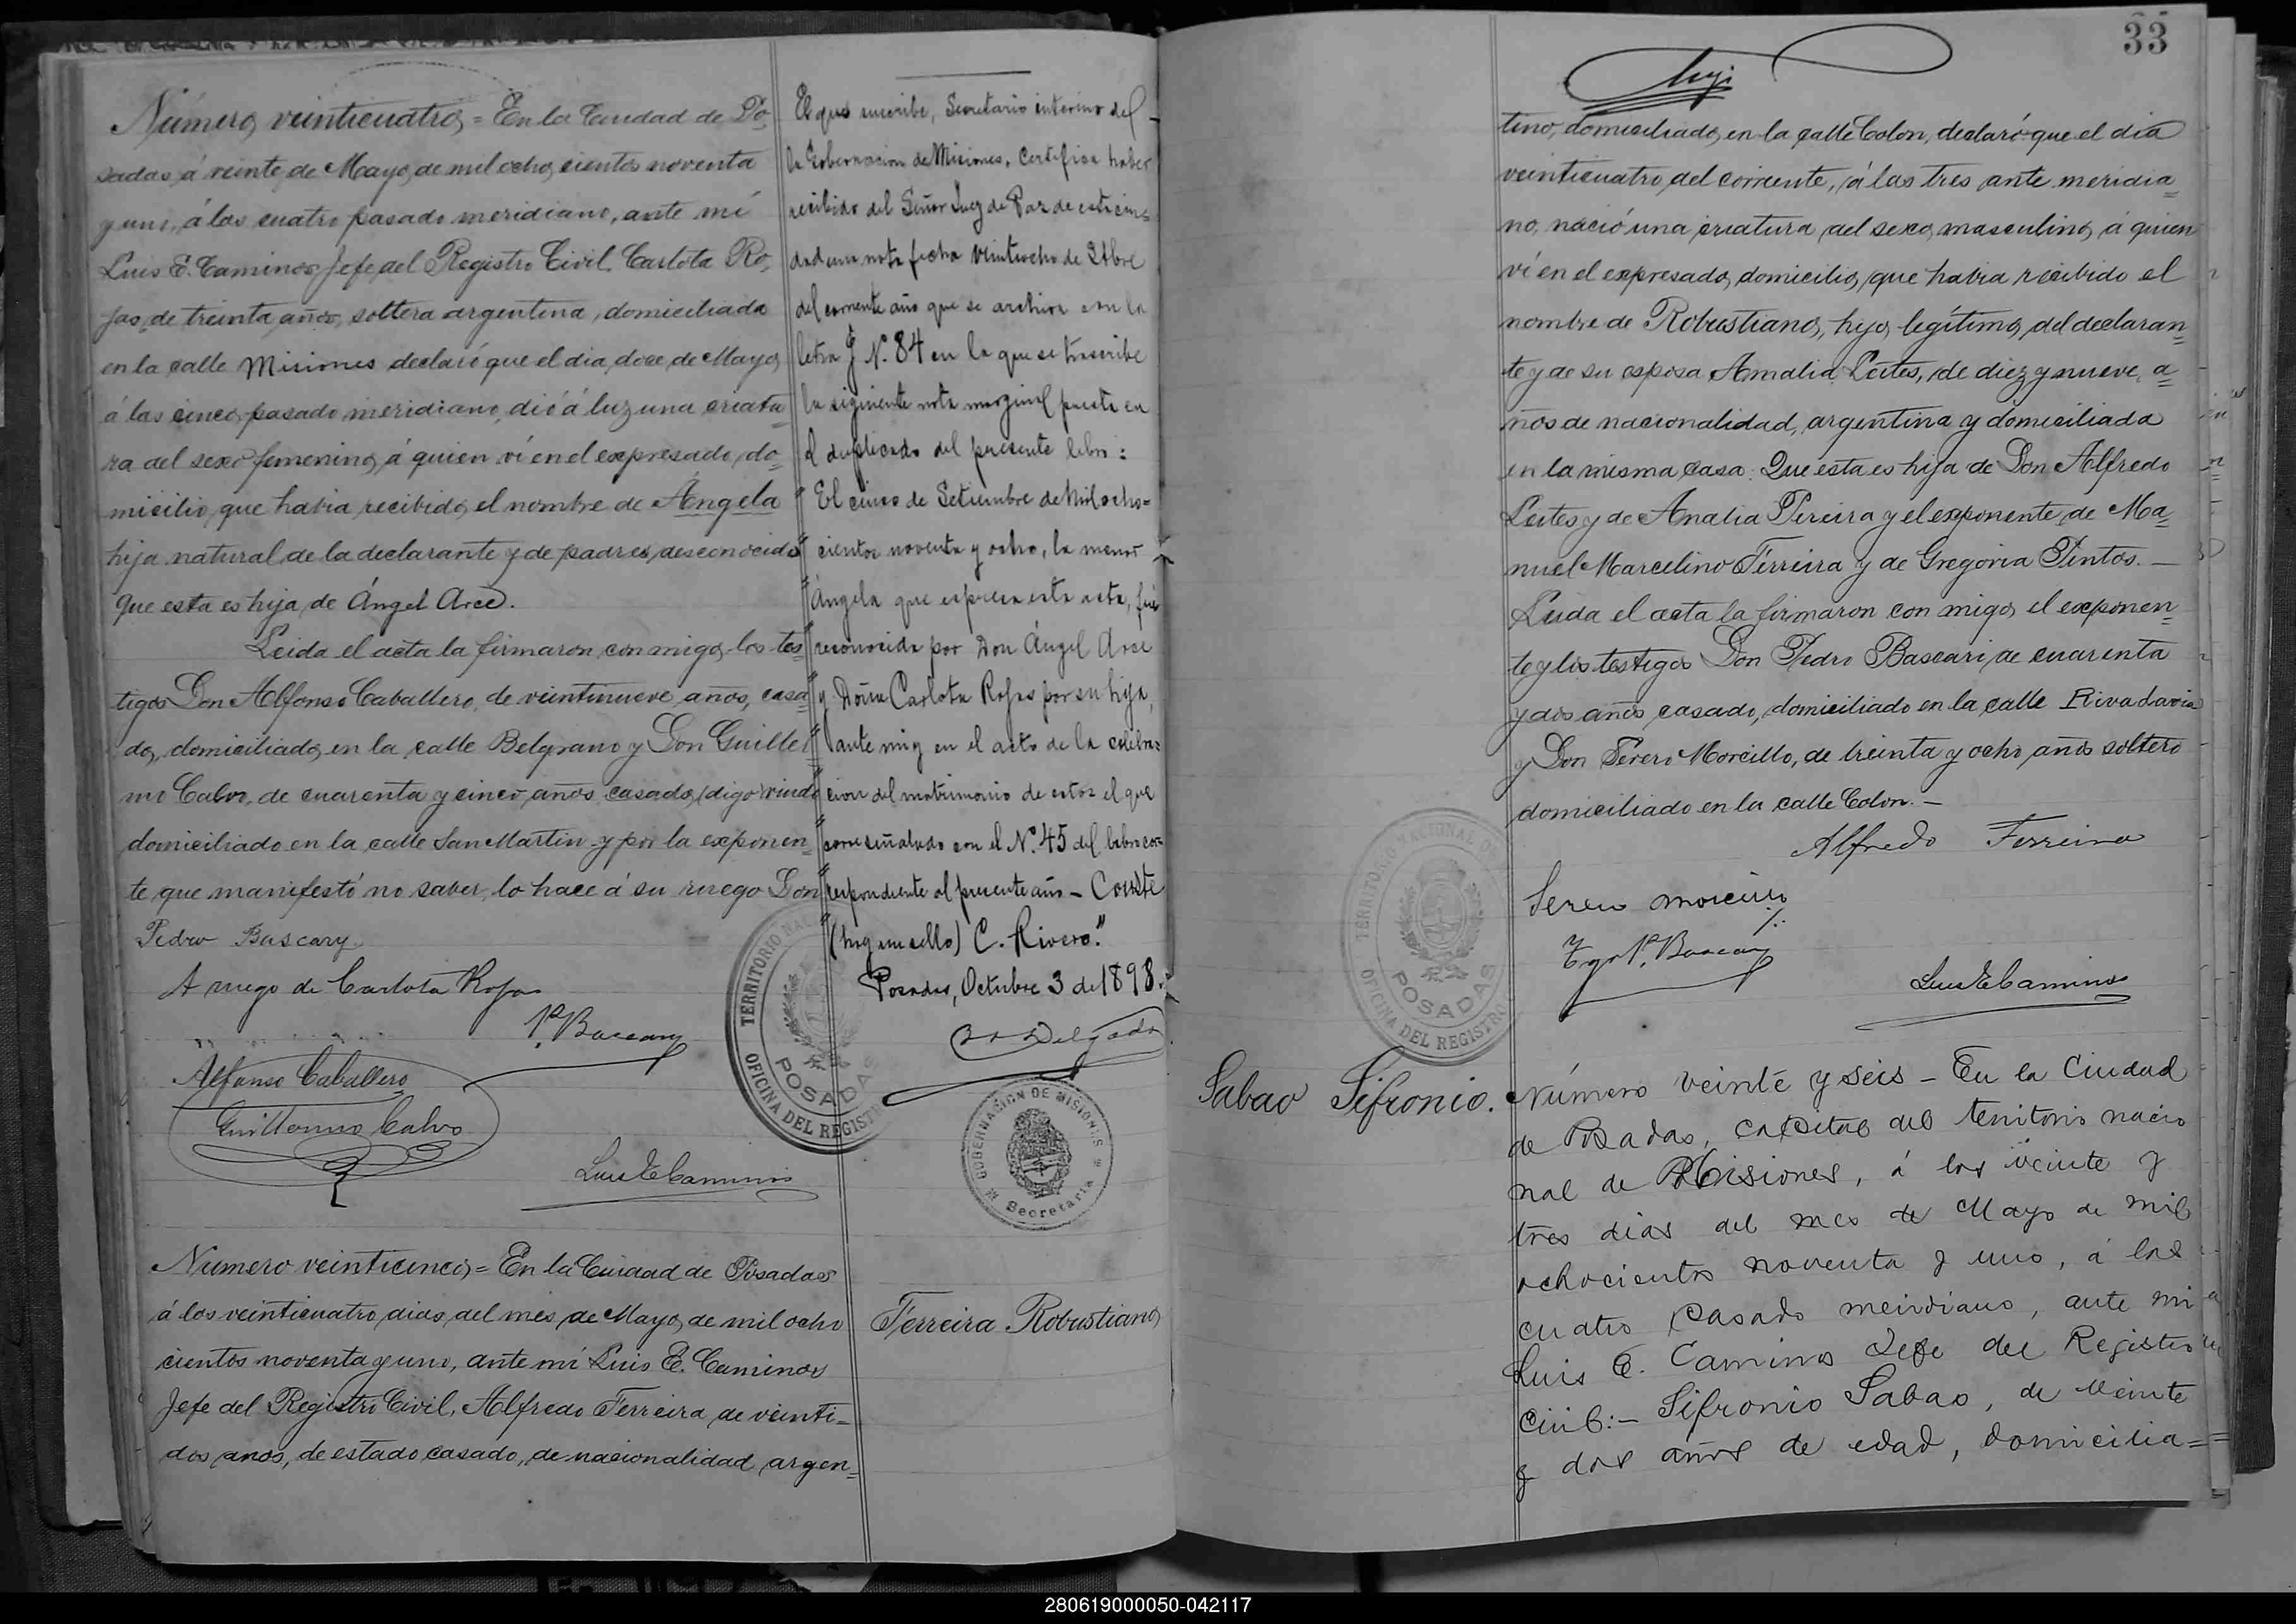 Número veinticuatro = En la Ciudad de Po-
sadas á veinte de Mayo de mil ocho cientos noventa
y uno, á las cuatro pasado meridiano, ante mí
Luis E. Caminos Jefe del Registro Civil, Carlota Ro-
jas, de treinta años, soltera argentina, domiciliada
en la calle Misiones declaró que el dia doce de Mayo
á las cinco pasado meridiano, dió á luz una criatu-
ra del sexo femenino, á quien ví en el expresado do-
micilio, que habia recibido el nombre de Ángela
hija natural de la declarante y de padres desconocido
Que esta es hija de Ángel Arce.
Leida el acta la firmaron con migo los tes-
tigos Don Alfonso Caballero, de veintinueve años, casa-
do, domiciliado en la calle Belgrano y Don Guiller-
mo Calvo, de cuarenta y cinco años, casado, (digo) viudo
domiciliado en la calle San Martin y por la exponen-
te que manifestó no saber, lo hace á su ruego Don
Pedro Bascary.
A ruego de Carlota Rojas
P. Bascary
Alfonso Caballero
Guillermo Calvo
Luis E Caminos
El que suscribe, Secretario interino de
la Gobernacion de Misiones, Certifica haber
recibido del Señor Juez de Paz de esta ciu-
dad una nota fecha veintiocho de
del corriente año que se archiva con la
letra J N.º 84 en la que se trascribe
la siguiente nota marginal puesta en
el duplicado del presente libro:
"El cinco de Setiembre de mil ocho-
" cientos noventa y ocho, la menor
" Ángela que espresa esta acta, fué
" reconocida por Don Ángel Arce
" y Doña Carlota Rojas por su hija,
" ante mí y en el acto de la celebra-
" cion del matrimonio de estos el que
" corre señalado con el N.º 45 del libro cor-
" respondiente al presente año - Conste
" (hay un sello) C. Rivero."
Posadas, Octubre 3 de 1898.
Delgado
TERRITORIO NACIONAL
POSADAS
OFICINA DEL REGISTRO
GOBERNACION DE MISIONES
Secretaria
Número veinticinco = En la Ciudad de Posadas
á los veinticuatro dias del mes de Mayo de mil ocho
cientos noventa y uno, ante mí Luis E. Caminos
Jefe del Registro Civil, Alfredo Ferreira de veinti-
dos años, de estado casado, de nacionalidad argen-
Ferreira Robustiano
33
tino, domiciliado en la calle Colon, declaró que el dia
veinticuatro del corriente, á las tres ante meridia-
no, nació una criatura del sexo masculino, á quien
ví en el expresado domicilio, que habia recibido el
nombre de Robustiano, hijo legítimo del declaran-
te y de su esposa Amalia Leites, de diez y nueve a-
ños de nacionalidad argentina y domiciliada
en la misma casa. Que esta es hija de Don Alfredo
Leites y de Analia Pereira y el exponente de Ma-
nuel Marcelino Ferreira y de Gregoria Pintos. —
Leida el acta la firmaron con migo el exponen-
te y los testigos Don Pedro Bascari, de cuarenta
y dos años casado, domiciliado en la calle Rivadavia
y Don Sereno Morcillo, de treinta y ocho años soltero
domiciliado en la calle Colon. —
Alfredo Ferreira
Morcillo
P. Bascary
Luis E Caminos
TERRITORIO NACIONAL
POSADAS
OFICINA DEL REGISTRO
Sabao Sifronio.
Número veinte y seis - En la Ciudad
de Posadas, capital del territorio nacio
nal de Misiones, á los veinte y
tres dias del mes de Mayo de mil
ochocientos noventa y uno, á las
cuatro pasado meridiano, ante mi
Luis E. Caminos Jefe del Registro
Civil:- Sifronio Sabao, de veinte
y dos años de edad, domicilia=
280619000050-042117